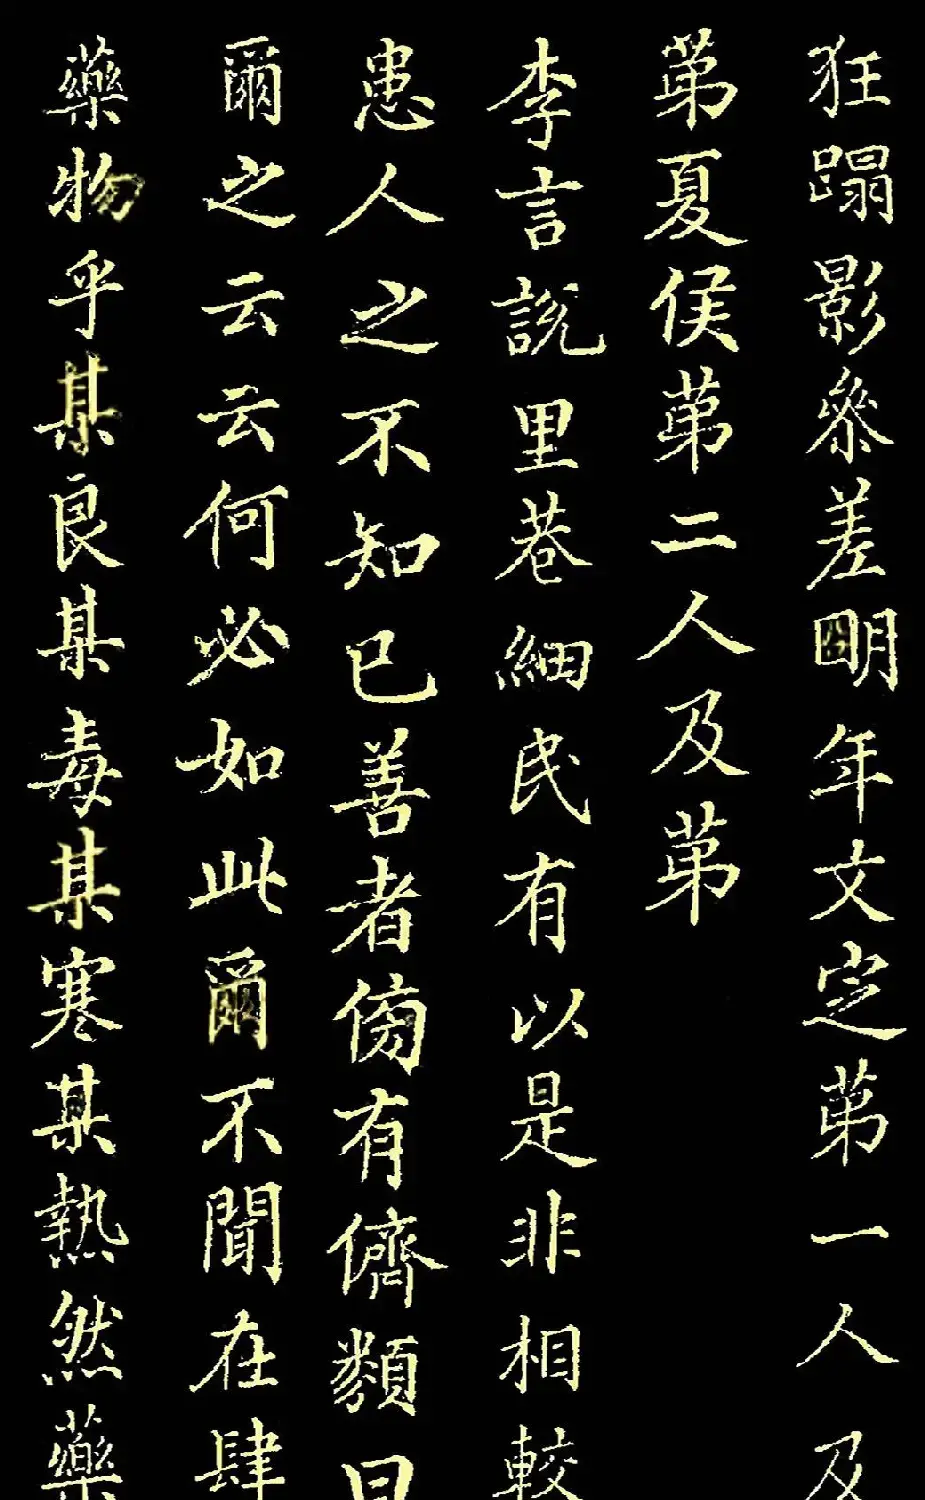 狂蹋影參差明年文定第一人及
第夏侯第二人及第
李言說里巷細民有以是非相較
患人之不知已善者傍有儕類曰
爾之云云何必如此爾不聞在肆
藥物乎某良某毒某寒某熱然藥